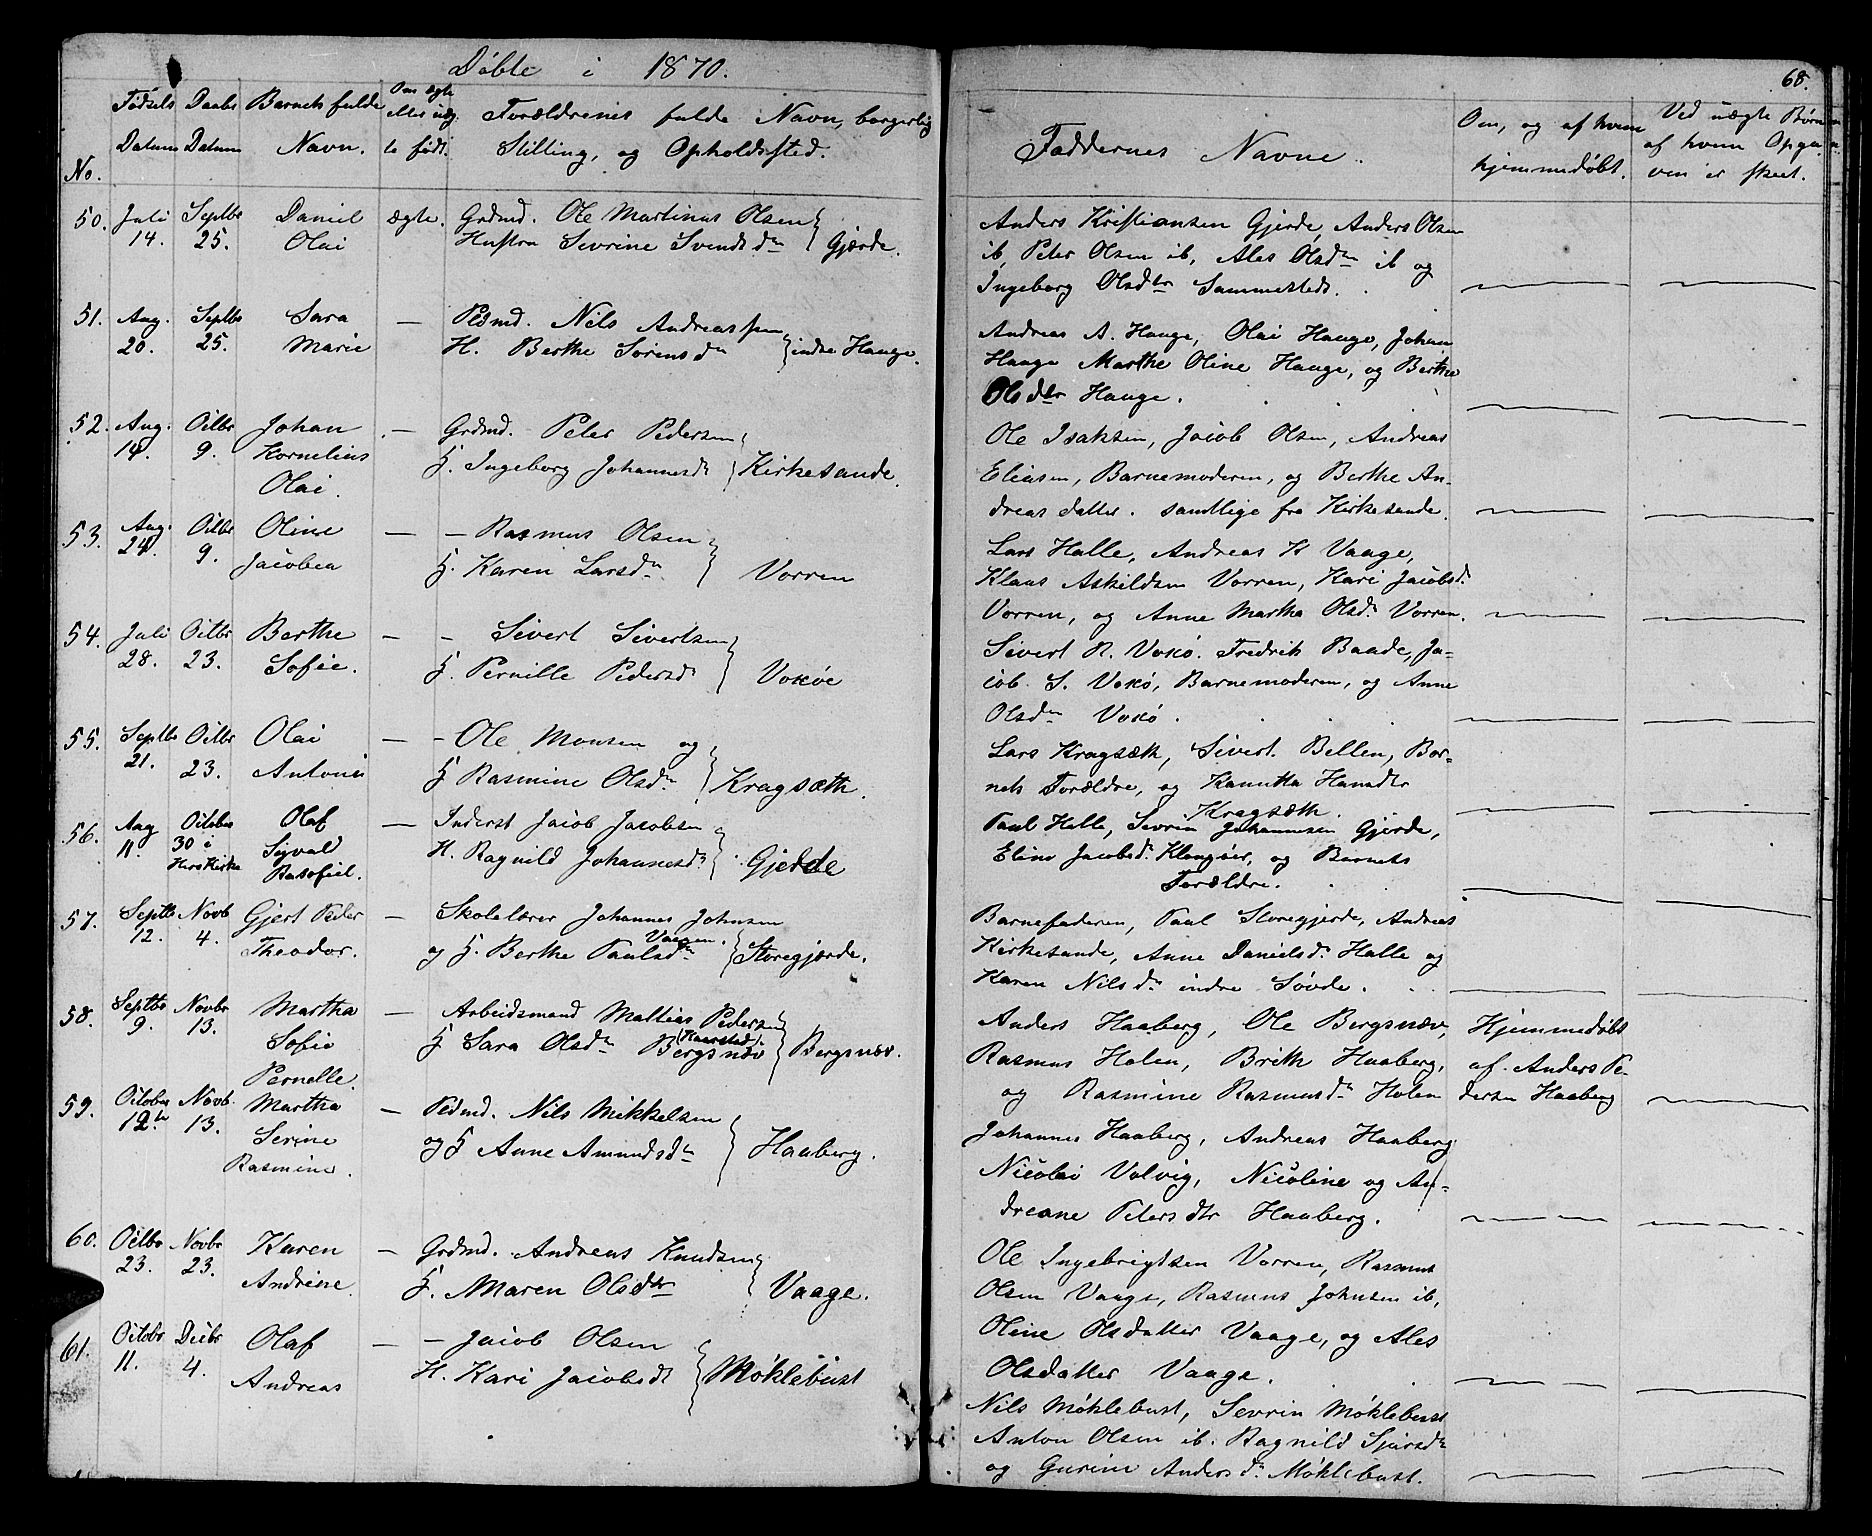 Døbte i 1870.
68.
No.
Fødsels Datum
Daabs Datum
Barnets fulde Navn.
Om ægte eller uæg- te født.
Forældrenes fulde Navn, borgerlig Stilling, og Opholdssted.
Faddernes Navne.
Om, og af hvem hjemmedøbt.
Ved uægte Børn af hvem Opga- ven er skeet.
50. Juli 14. Septbr 25. Daniel Olai ægte. Grdmd. Ole Martinus Olsen
Hustru Sevrine Svendsdr Gjerde.
Anders Kristiansen Gjerde, Anders Olsen
ib, Peter Olsen ib, Ales Olsdr ib og
Ingeborg Olsdtr Sammesteds.
51. Aug. 20. Septbr 25. Sara Marie — Pldsmd. Nils Andreassen
H. Berthe Sørensdr indre Hauge.
Andreas A. Hauge, Olai Hauge, Johan
Hauge Marthe Oline Hauge, og Berthe
Olsdtr Hauge.
52. Aug. 14. Octbr 9. Johan Kornelius Olai. — Grdmd. Peter Pedersen
H. Ingeborg Johannesdr Kirkesande.
Ole Isaksen, Jacob Olsen, Andreas
Eliasen, Barnemoderen, og Berthe An-
dreas datter. samtlige fra Kirkesande.
53. Aug. 24. Octbr 9. Oline Jacobea — — Rasmus Olsen
H. Karen Larsdr Vorren
Lars Halle, Andreas K Vaage,
Klaus Askildsen Vorren, Kari Jacobsd.
Vorren, og Anne Martha Olsdr Vorren.
54. Juli 28. Octbr 23. Berthe Sofie. — — Sivert Sivertsen
H. Pernille Pedersdr Voxøe
Sivert R. Voxø. Fredrik Baade, Ja-
cob. S. Voxø, Barnemoderen, og Anne
Olsdr Voxø.
55. Septbr 21. Octbr 23. Olai Antoni — — Ole Monsen og
H Rasmine Olsdr Kragsæth.
Lars Kragsæth, Sivert. Bellen, Bar-
nets Forældre, og Kanutta Hansdtr
Kragsæth.
56. Aug 11. Octobr 30 i Herø Kirke Olaf Sigvald — Inderst Jacob Jacobsen
H. Ragnild Johannesdr Gjerde
Paul Halle, Sevrin Johannesen Gjerde,
Eline Jacobsdr og Barnets
Forældre.
57. Septbr 12. Novb 4. Gjert Peder Theodor. — Skolelærer Johannes Johnsen
Vaagen.
og H. Berthe Paulsdr Storegjerde.
Barnefaderen, Paul Storegjerde, Andreas
Kirkesande, Anne Danielsdr Halle og
Karen Nilsdr indre Søvde.
58. Septbr 9. Novbr 13. Martha Sofie Pernelle. — Arbeidsmand Mattias Pedersen
(Kaarstad)
H Sara Olsdr Bergsnæv Bergsnæv.
Anders Haaberg, Ole Bergsnæv,
Rasmus Holen, Brith Haaberg,
og Rasmine Rasmusdr Holen
Hjemmedøbt
af. Anders Pe-
dersen Haaberg
59. Octobr 12te Novb. 13. Martha Serine Rasmine. — Pldsmd. Nils Mikkelsen
og H Anne Amundsdr Haaberg.
Johannes Haaberg, Andreas Haaberg
Nicolai Volvig, Nicoline og An-
dreane Petersdtr Haaberg.
60. Octbr 23. Novbr 23. Karen Andrine. — Grdmd. Andreas Knudsen
H. Maren Olsdtr Vaage.
Ole Ingebrigtsen Vorren, Rasmus
Olsen Vaage, Rasmus Johnsen ib,
Oline Olsdatter Vaage, og Ales
Olsdatter Vaage.
61. Octobr 11. Decbr 4. Olaf Andreas — — Jacob Olsen
H. Kari Jacobsdr Møklebust
Nils Møklebust, Sevrin Møklebust
Anton Olsen ib. Ragnild Sjursdr
og Gurine Andersdr Møklebust.